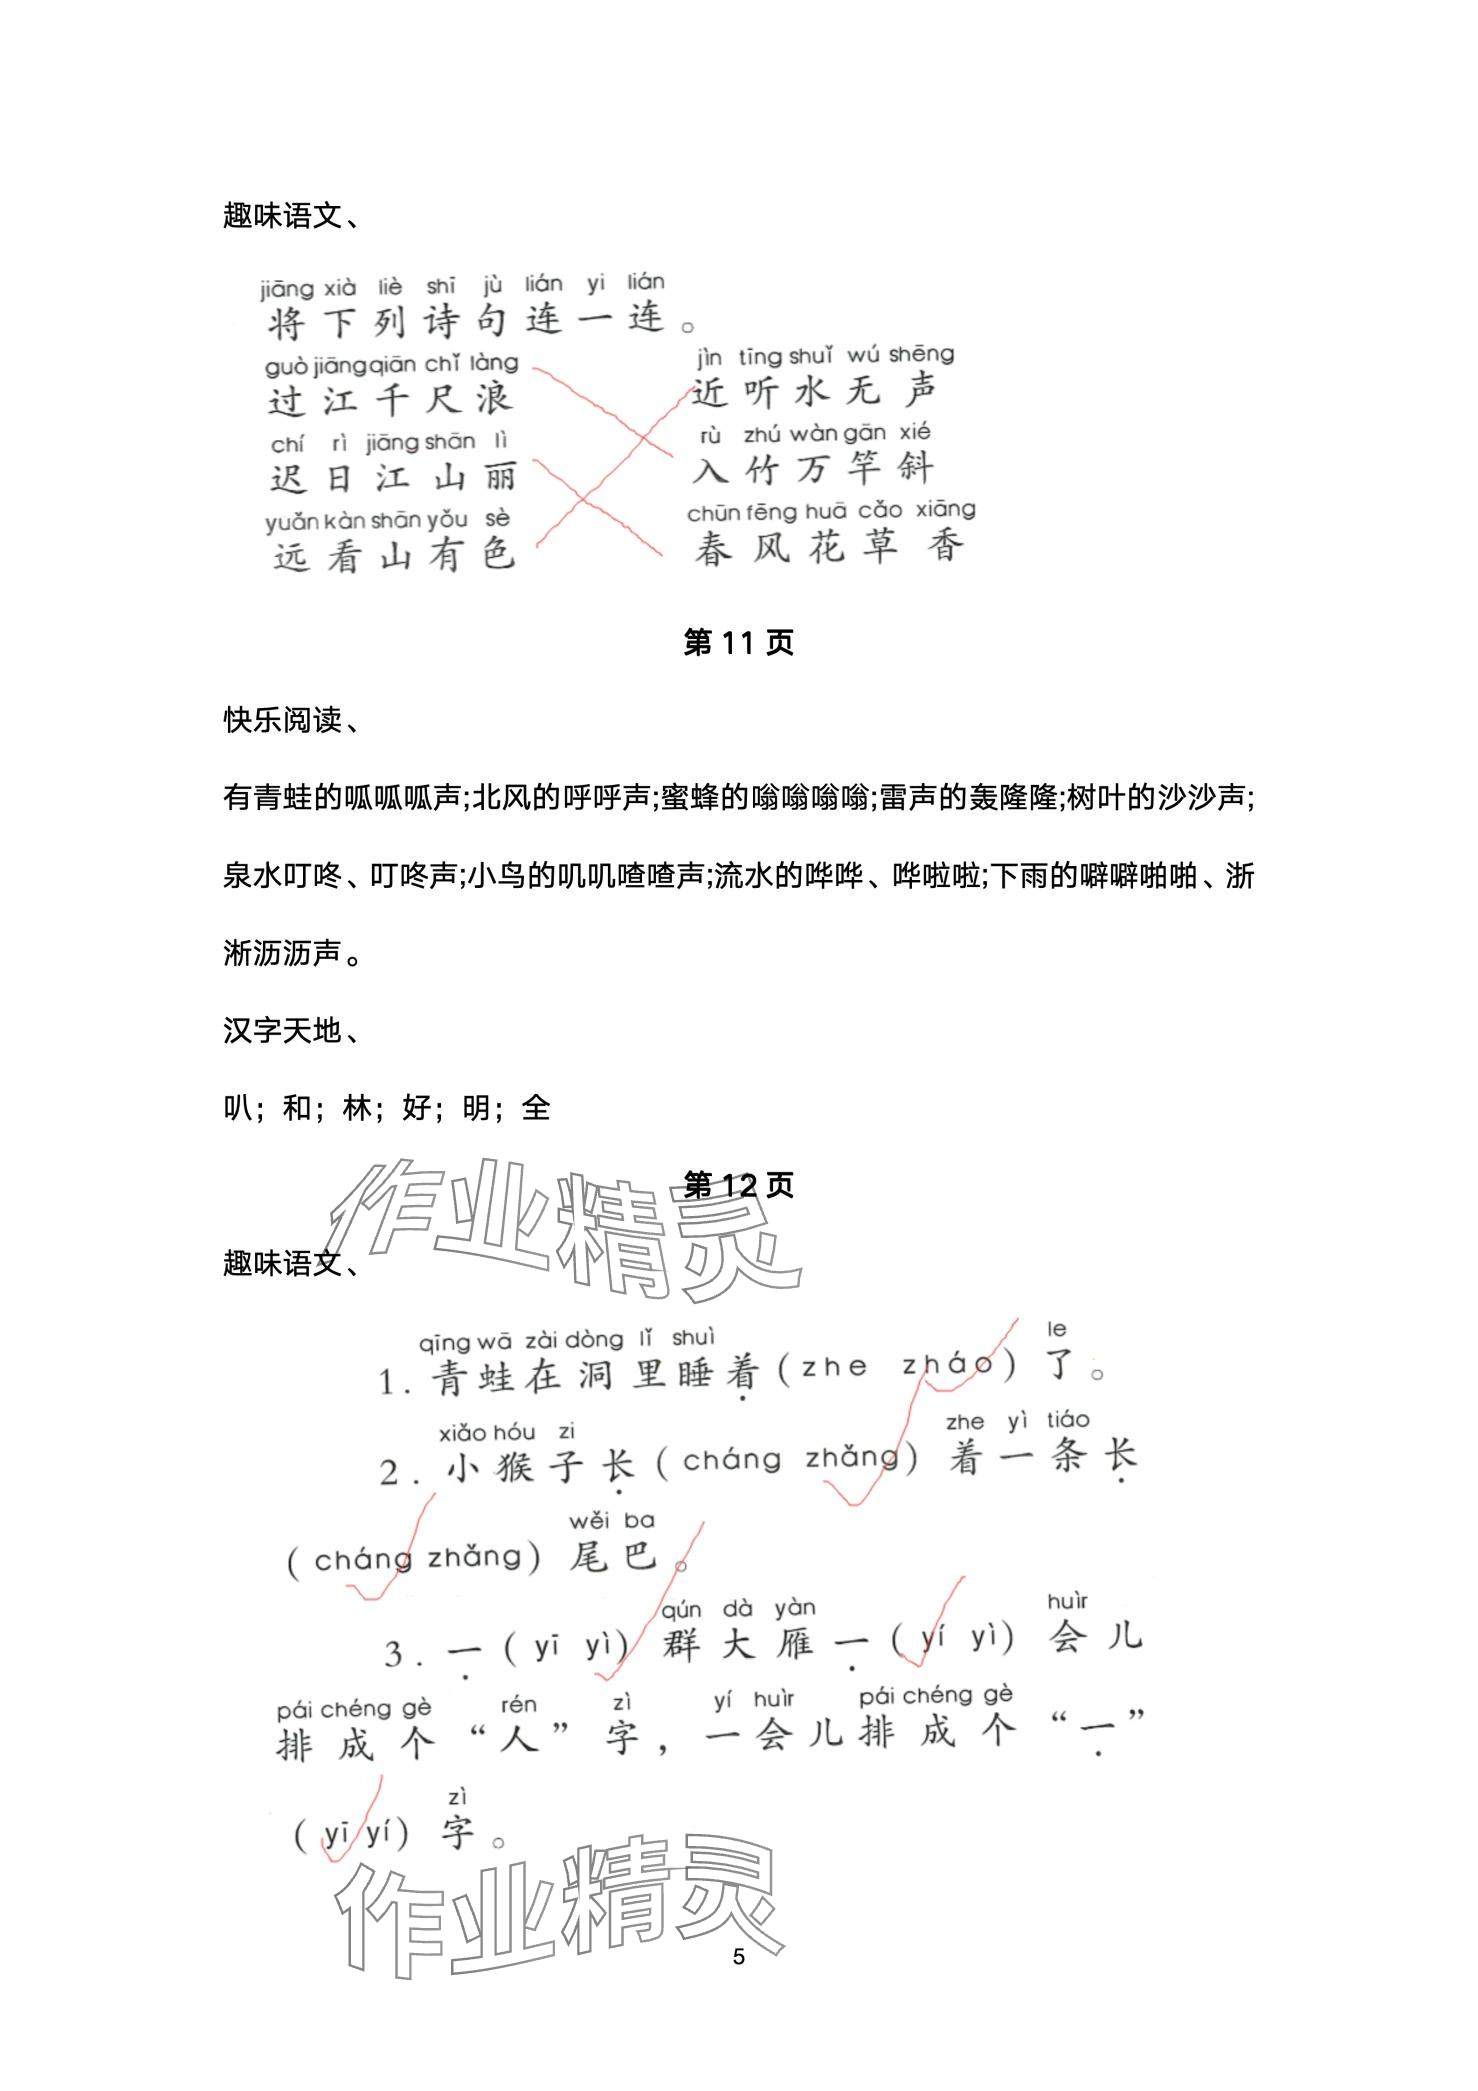 趣味语文、
jiāng xià liè shī jù lián yi lián
将下列诗句连一连。
guò jiāng qiān chǐ làng jìn tīng shuǐ wú shēng
过江千尺浪 近听水无声
chí rì jiāng shān lì rù zhú wàn gān xié
迟日江山丽 入竹万竿斜
yuǎn kàn shān yǒu sè chūn fēng huā cǎo xiāng
远看山有色 春风花草香
第 11 页
快乐阅读、
有青蛙的呱呱呱声;北风的呼呼声;蜜蜂的嗡嗡嗡嗡;雷声的轰隆隆;树叶的沙沙声;
泉水叮咚、叮咚声;小鸟的叽叽喳喳声;流水的哗哗、哗啦啦;下雨的噼噼啪啪、浙
淅沥沥声。
汉字天地、
叭；和；林；好；明；全
第 12 页
趣味语文、
qīng wā zài dòng lǐ shuì le
1. 青蛙在洞里睡着（zhe zháo）了。
xiǎo hóu zi zhe yì tiáo
2. 小猴子长（cháng zhǎng）着一条长
wěi ba
（cháng zhǎng）尾巴。
qún dà yàn huìr
3. 一（yī yì）群大雁一（yí yì）会儿
pái chéng gè rén zì yí huìr pái chéng gè
排成个“人”字，一会儿排成个“一”
zì
（yī yí）字。
作业精灵
作业精灵
5